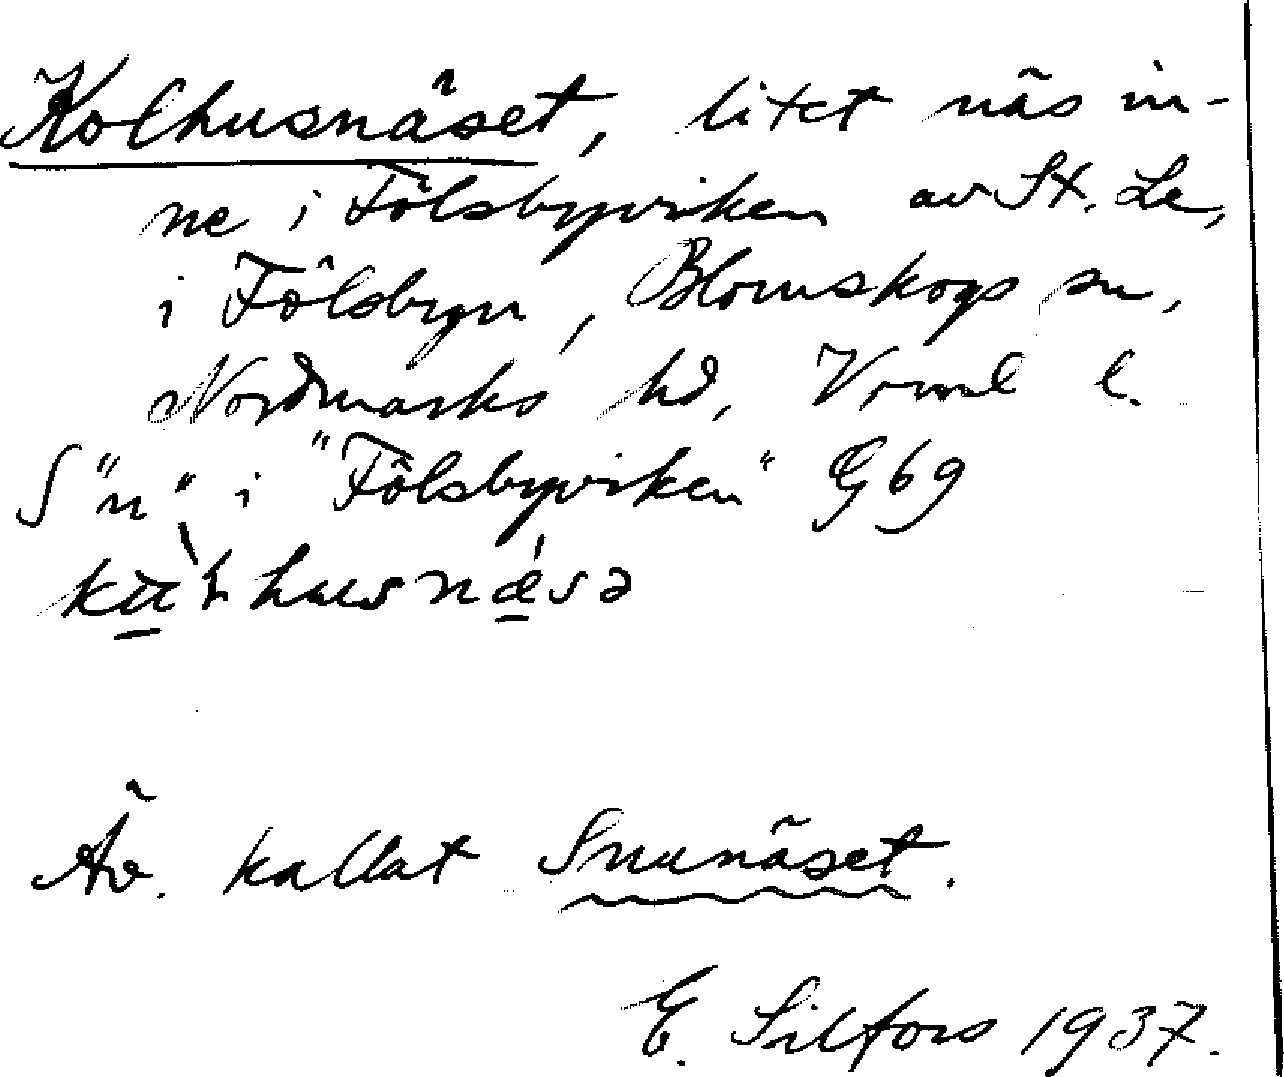 Kolhusnäset, litet näs in-
ne i Fölsbyviken av St. Le,
i Fölsbyn, Blomskogs sn,
Nordmarks hd, Vrml l.
S "n" i "Fölsbyviken" G 69
husnæ̀sə
Äv. kallat Snunäset.
E. Silfors 1937.